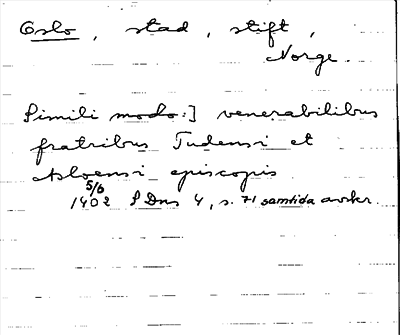 Oslo, stad, stift,
Norge.
Simili modo:] venerabilibus
fratribus Tudensi et
Asloensi episcopis
5/6
1402 SDns 4, s. 71 samtida avskr.